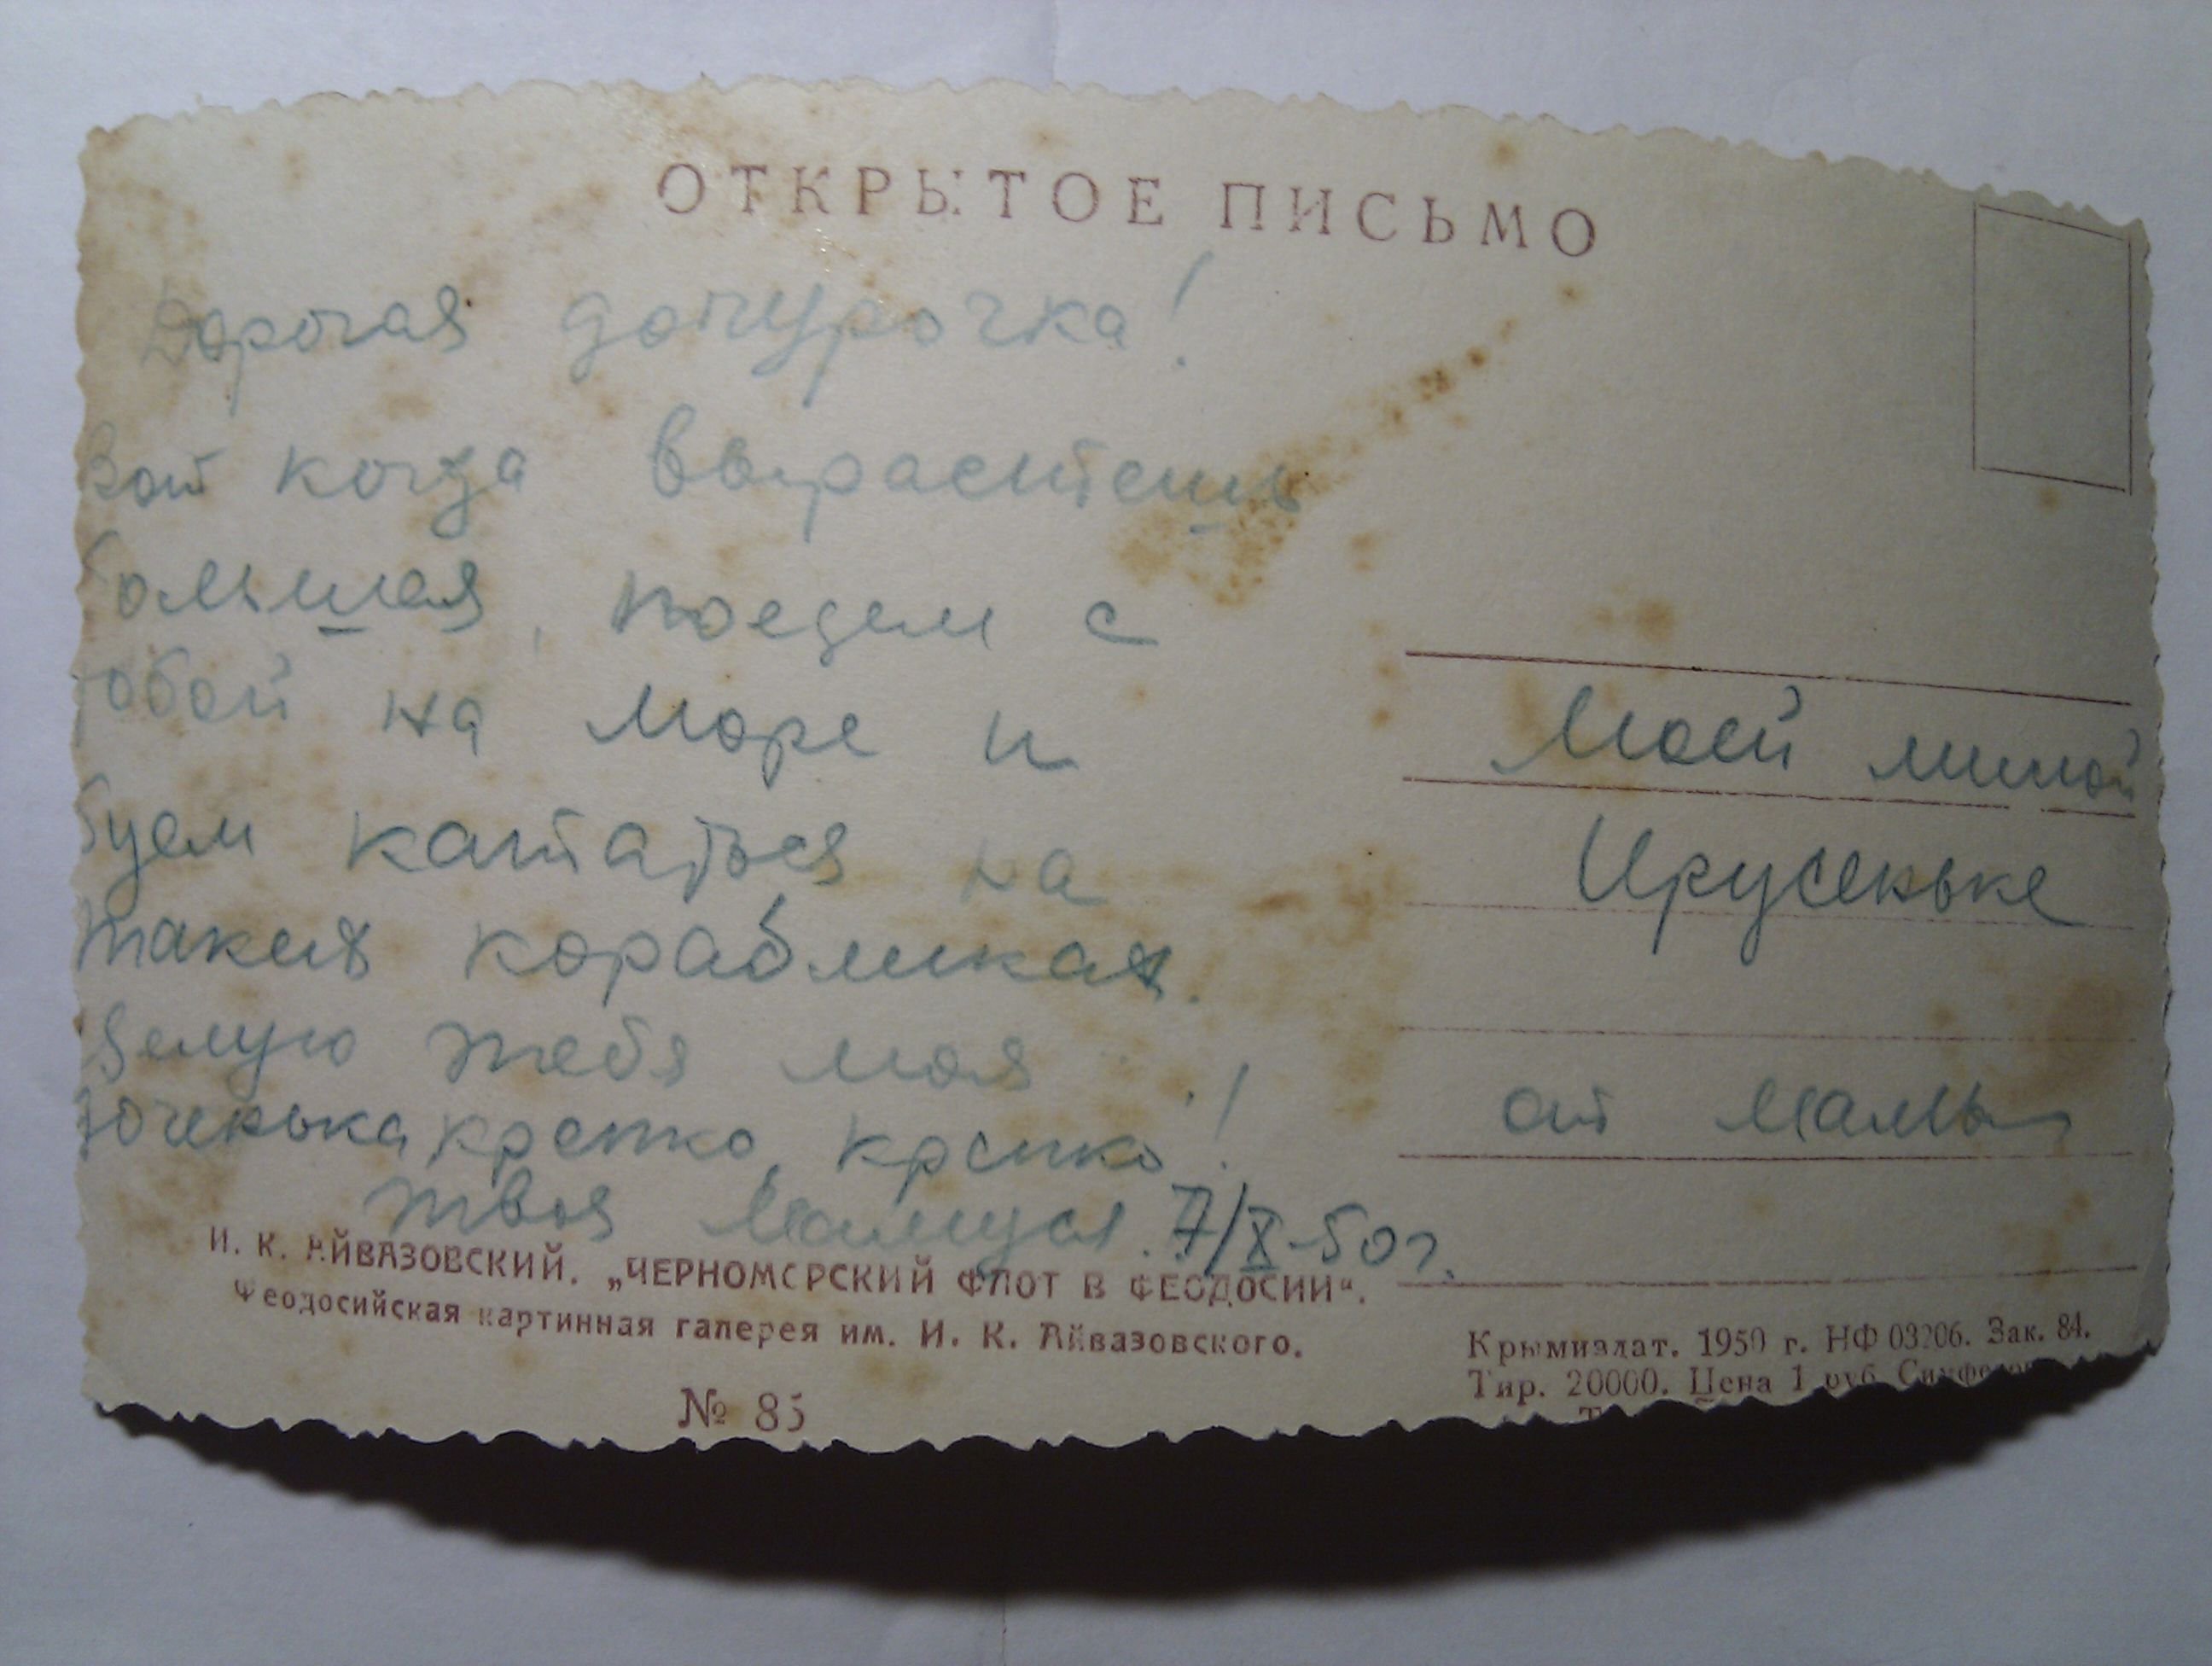 ОТКРЫТОЕ ПИСЬМО
Дорогая дочурочка!
Вот когда вырастешь
большая, поедем с
тобой на море и
будем кататься на
таких корабликах.
Целую тебя моя
доченька, крепко, крепко!
твоя Мамуся. 7/X-50 г.
Моей милой
Ирусеньке
от мамы
И. К. АЙВАЗОВСКИЙ. „ЧЕРНОМОРСКИЙ ФЛОТ В ФЕОДОСИИ“.
Феодосийская картинная галерея им. И. К. Айвазовского.
№ 85
Крымиздат. 1950 г. НФ 03206. Зак. 84.
Тир. 20000. Цена 1 руб.